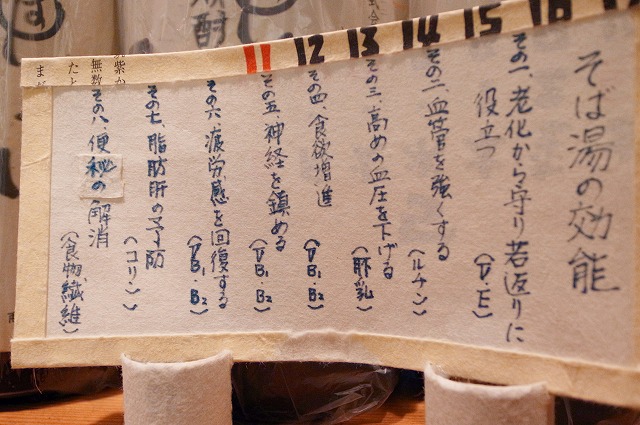 11 12 13 14 15 16
そば湯の効能
その一、老化から守り若返りに
役立つ (V・E)
その二、血管を強くする (ルチン)
その三、高めの血圧を下げる (胚乳)
その四、食欲増進 (VB₁・B₂)
その五、神経を鎮める (VB₁・B₂)
その六、疲労感を回復する (VB₁・B₂)
その七、脂肪肝の予防 (コリン)
その八、便秘の解消 (食物繊維)